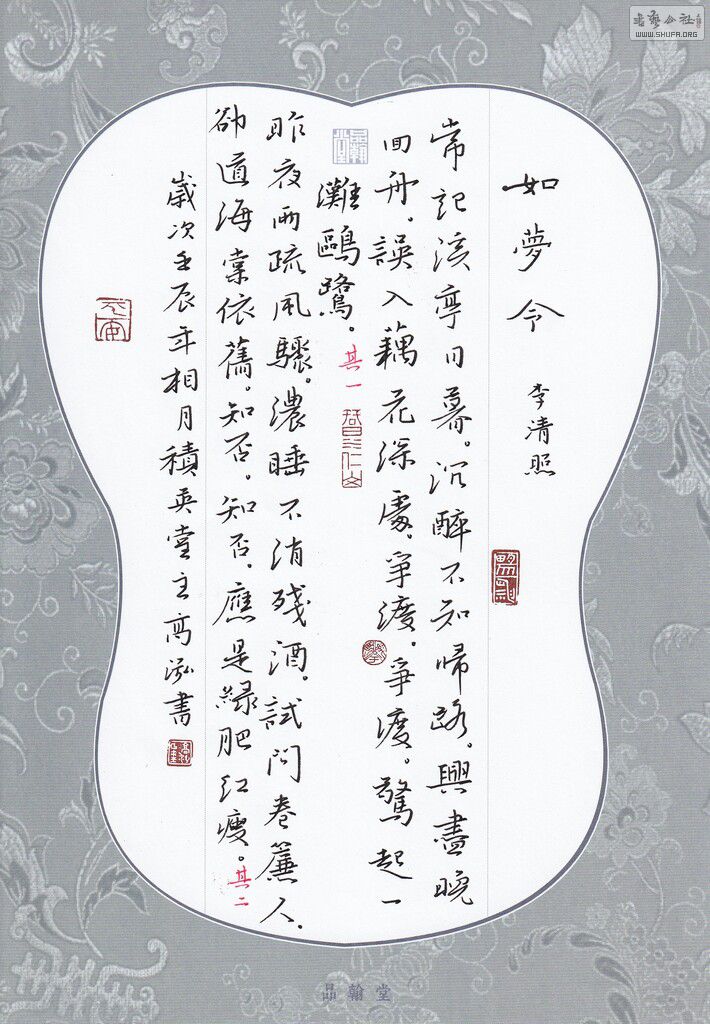 如夢令 李清照
常記溪亭日暮。沉醉不知帰路。興盡晚
回舟。誤入藕花深處。爭渡。爭渡。驚起一
灘鷗鷺。其一
昨夜雨疏風驟。濃睡不消殘酒。試問卷簾人。
卻道海棠依舊。知否。知否。應是綠肥紅瘦。其二
歲次壬辰年相月積英堂主高泓書
品翰堂
書藝公社
WWW.SHUFA.ORG